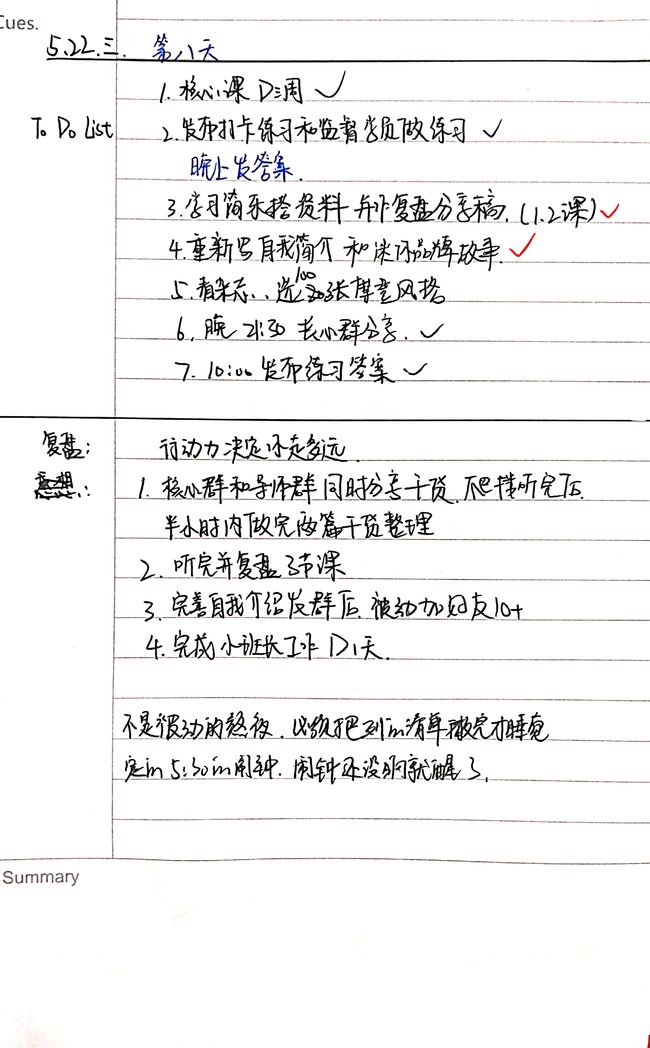 Cues.
5.22.三. 第八天
1. 核心课 D三周 ✓
To Do List
2. 发布打卡练习和监督学员做练习 ✓
晚上发答案.
3. 学习简乐搭资料 并作复盘分享稿. (1.2课) ✓
4. 重新写自我简介 和 品牌故事. ✓
5. 看杂志、选100张博主风格
6. 晚 21:30 长心群分享. ✓
7. 10:00 发布练习答案 ✓
复盘:
行动力决定你走多远.
感想:
1. 核心群和导师群同时分享干货. 爬楼听完后.
半小时内做完两篇干货整理
2. 听完并复盘3节课
3. 完善自我介绍发群后. 被动加好友10+
4. 完成小班长工作 D1天.
不是被动的熬夜. 必须把列in清单做完才睡觉
定in 5:30 in闹钟. 闹钟还没响就醒了.
Summary